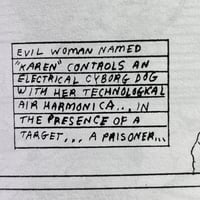 EVIL WOMAN NAMED
"KAREN" CONTROLS AN
ELECTRICAL CYBORG DOG
WITH HER TECHNOLOGKAL
AIR HARMONICA... IN
THE PRESENCE OF A
TARGET,,, A PRISONER,,,